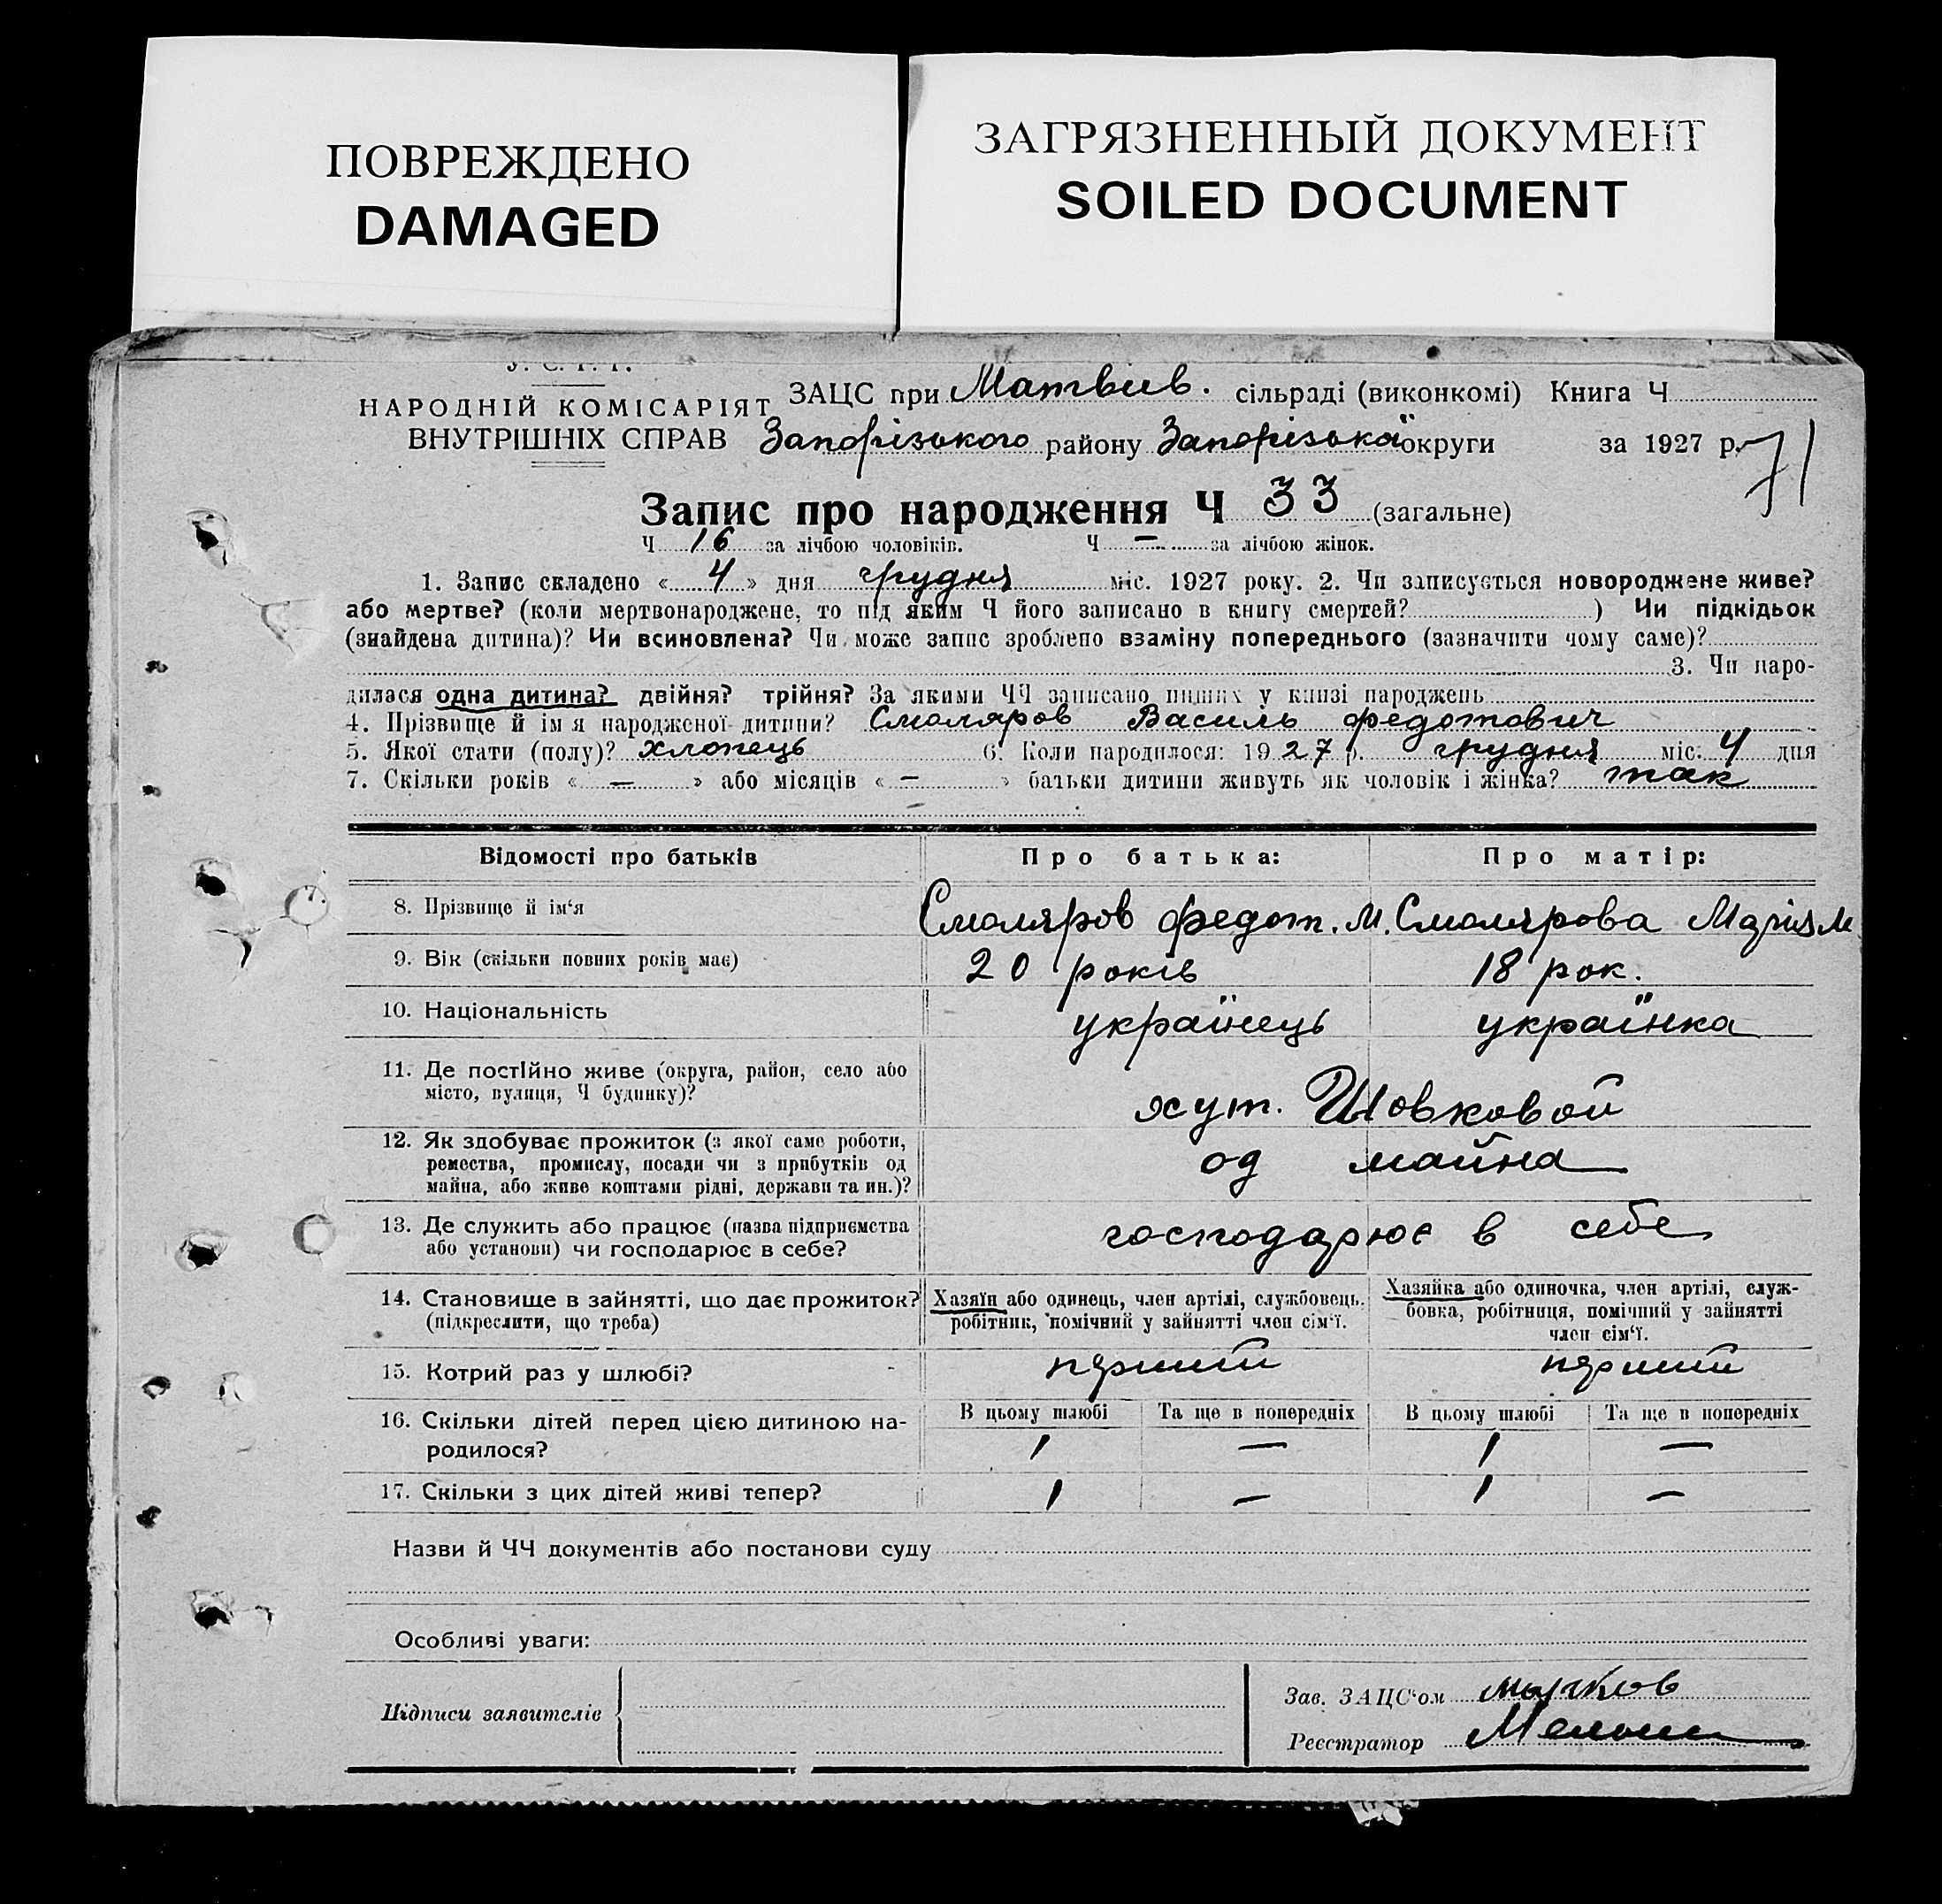 ПОВРЕЖДЕНО
DAMAGED
ЗАГРЯЗНЕННЫЙ ДОКУМЕНТ
SOILED DOCUMENT
НАРОДНІЙ КОМІСАРІЯТ
ВНУТРІШНІХ СПРАВ
ЗАЦС при Матвіїв. сільраді (виконкомі) Книга Ч
Запорізького району Запорізької округи за 1927 р.
71
Запис про народження Ч 33 (загальне)
Ч 16 за лічбою чоловіків. Ч — за лічбою жінок.
1. Запис складено « 4 » дня грудня міс. 1927 року. 2. Чи записується новороджене живе?
або мертве? (коли мертвонароджене, то під яким Ч його записано в книгу смертей? ) Чи підкідьок
(знайдена дитина)? Чи всиновлена? Чи може запис зроблено взаміну попереднього (зазначити чому саме)?
3. Чи наро-
дилася одна дитина? двійня? трійня? За якими ЧЧ записано инших у книзі народжень
4. Прізвище й ім'я народженої дитини? Смоляров Василь Федотович
5. Якої стати (полу)? хлопець 6. Коли народилося: 1927 р. грудня міс. 4 дня
7. Скільки років « — » або місяців « — » батьки дитини живуть як чоловік і жінка? так
Відомості про батьків Про батька: Про матір:
8. Прізвище й ім'я Смоляров Федот. М. Смолярова Марія М
9. Вік (скільки повних років має) 20 років 18 рок.
10. Національність українець українка
11. Де постійно живе (округа, район, село або
місто, вулиця, Ч будинку)?
хут. Шовковой
12. Як здобуває прожиток (з якої саме роботи,
ремества, промислу, посади чи з прибутків од
майна, або живе коштами рідні, держави та ин.)?
од майна
13. Де служить або працює (назва підприємства
або установи) чи господарює в себе?
господарює в себе
14. Становище в зайнятті, що дає прожиток?
(підкреслити, що треба)
Хазяїн або одинець, член артілі, службовець.
робітник, помічний у зайнятті член сім'ї.
Хазяйка або одиночка, член артілі, служ-
бовка, робітниця, помічний у зайнятті
член сім'ї.
15. Котрий раз у шлюбі? перший перший
16. Скільки дітей перед цією дитиною на-
родилося?
В цьому шлюбі Та ще в попередніх В цьому шлюбі Та ще в попередніх
1 — 1 —
17. Скільки з цих дітей живі тепер? 1 — 1 —
Назви й ЧЧ документів або постанови суду
Особливі уваги:
Підписи заявителів
Зав. ЗАЦС'ом
Реєстратор